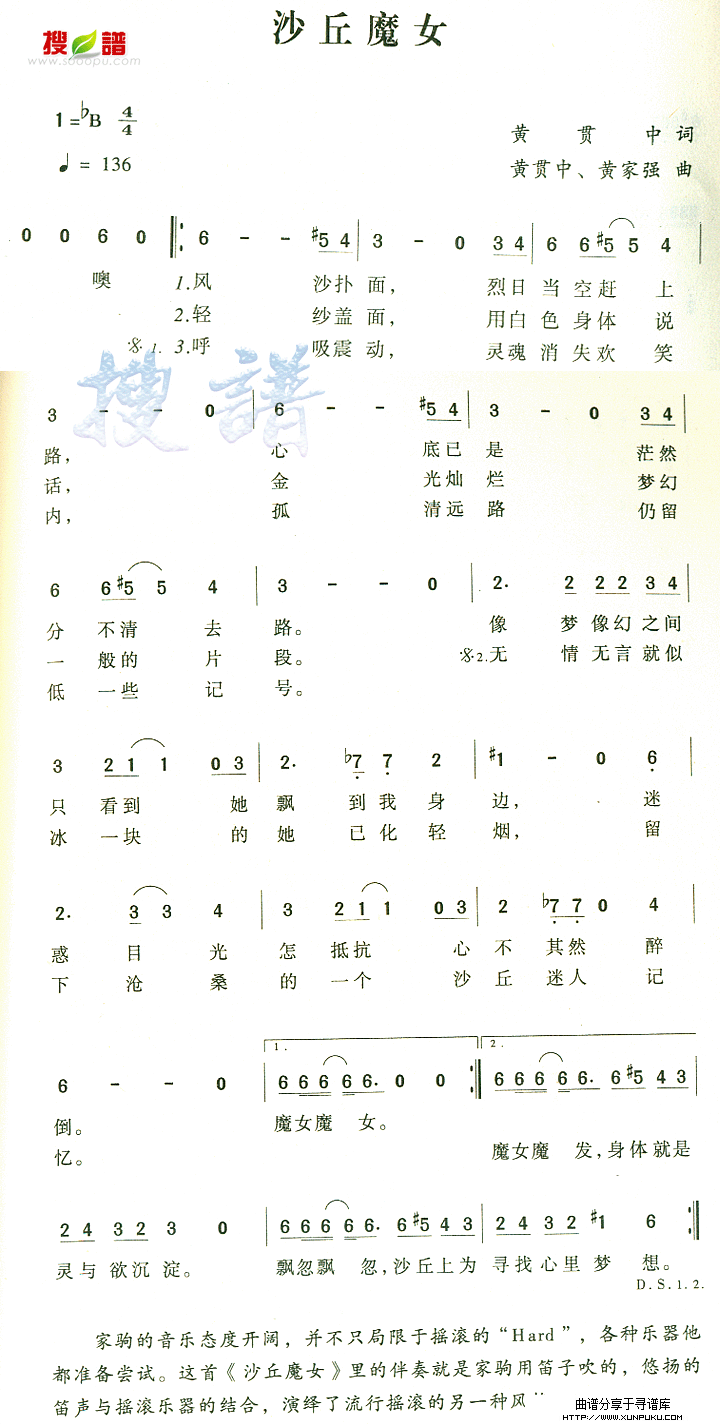 搜谱
www.sooopu.com
沙丘魔女
1=♭B 4/4
♩= 136
黄 贯 中 词
黄贯中、黄家强 曲
0 0 6 0 ‖: 6 - - #5 4 | 3 - 0 3 4 | 6 6 #5 5 4 |
噢 1.风 沙扑 面， 烈日 当 空赶 上
2.轻 纱盖 面， 用白 色 身体 说
𝄋1. 3.呼 吸震 动， 灵魂 消 失欢 笑
搜谱
3 - - 0 | 6 - - #5 4 | 3 - 0 3 4 |
路， 心 底已 是 茫然
话， 金 光灿 烂 梦幻
内， 孤 清远 路 仍留
6 6 #5 5 4 | 3 - - 0 | 2. 2 2 2 3 4 |
分 不清 去 路。 像 梦 像幻 之间
一 般的 片 段。 𝄋2.无 情 无言 就似
低 一些 记 号。
3 2 1 1 0 3 | 2. ♭7 7 2 | #1 - 0 6 |
只 看到 她 飘 到我 身 边， 迷
冰 一块 的 她 已化 轻 烟， 留
2. 3 3 4 | 3 2 1 1 0 3 | 2 ♭7 7 0 4 |
惑 目 光 怎 抵抗 心 不 其然 醉
下 沧 桑 的 一个 沙 丘 迷人 记
1. 2.
6 - - 0 | 6 6 6 6 6. 0 0 :‖ 6 6 6 6 6. 6 #5 4 3 |
倒。 魔女魔 女。
忆。 魔女魔 发，身体就是
2 4 3 2 3 0 | 6 6 6 6 6. 6 #5 4 3 | 2 4 3 2 #1 6 :‖
灵与 欲沉 淀。 飘忽飘 忽，沙丘上为 寻找心里 梦 想。
D.S.1.2.
家驹的音乐态度开阔，并不只局限于摇滚的“Hard”，各种乐器他
都准备尝试。这首《沙丘魔女》里的伴奏就是家驹用笛子吹的，悠扬的
笛声与摇滚乐器的结合，演绎了流行摇滚的另一种风
曲谱分享于寻谱库
http://www.xunpuku.com/